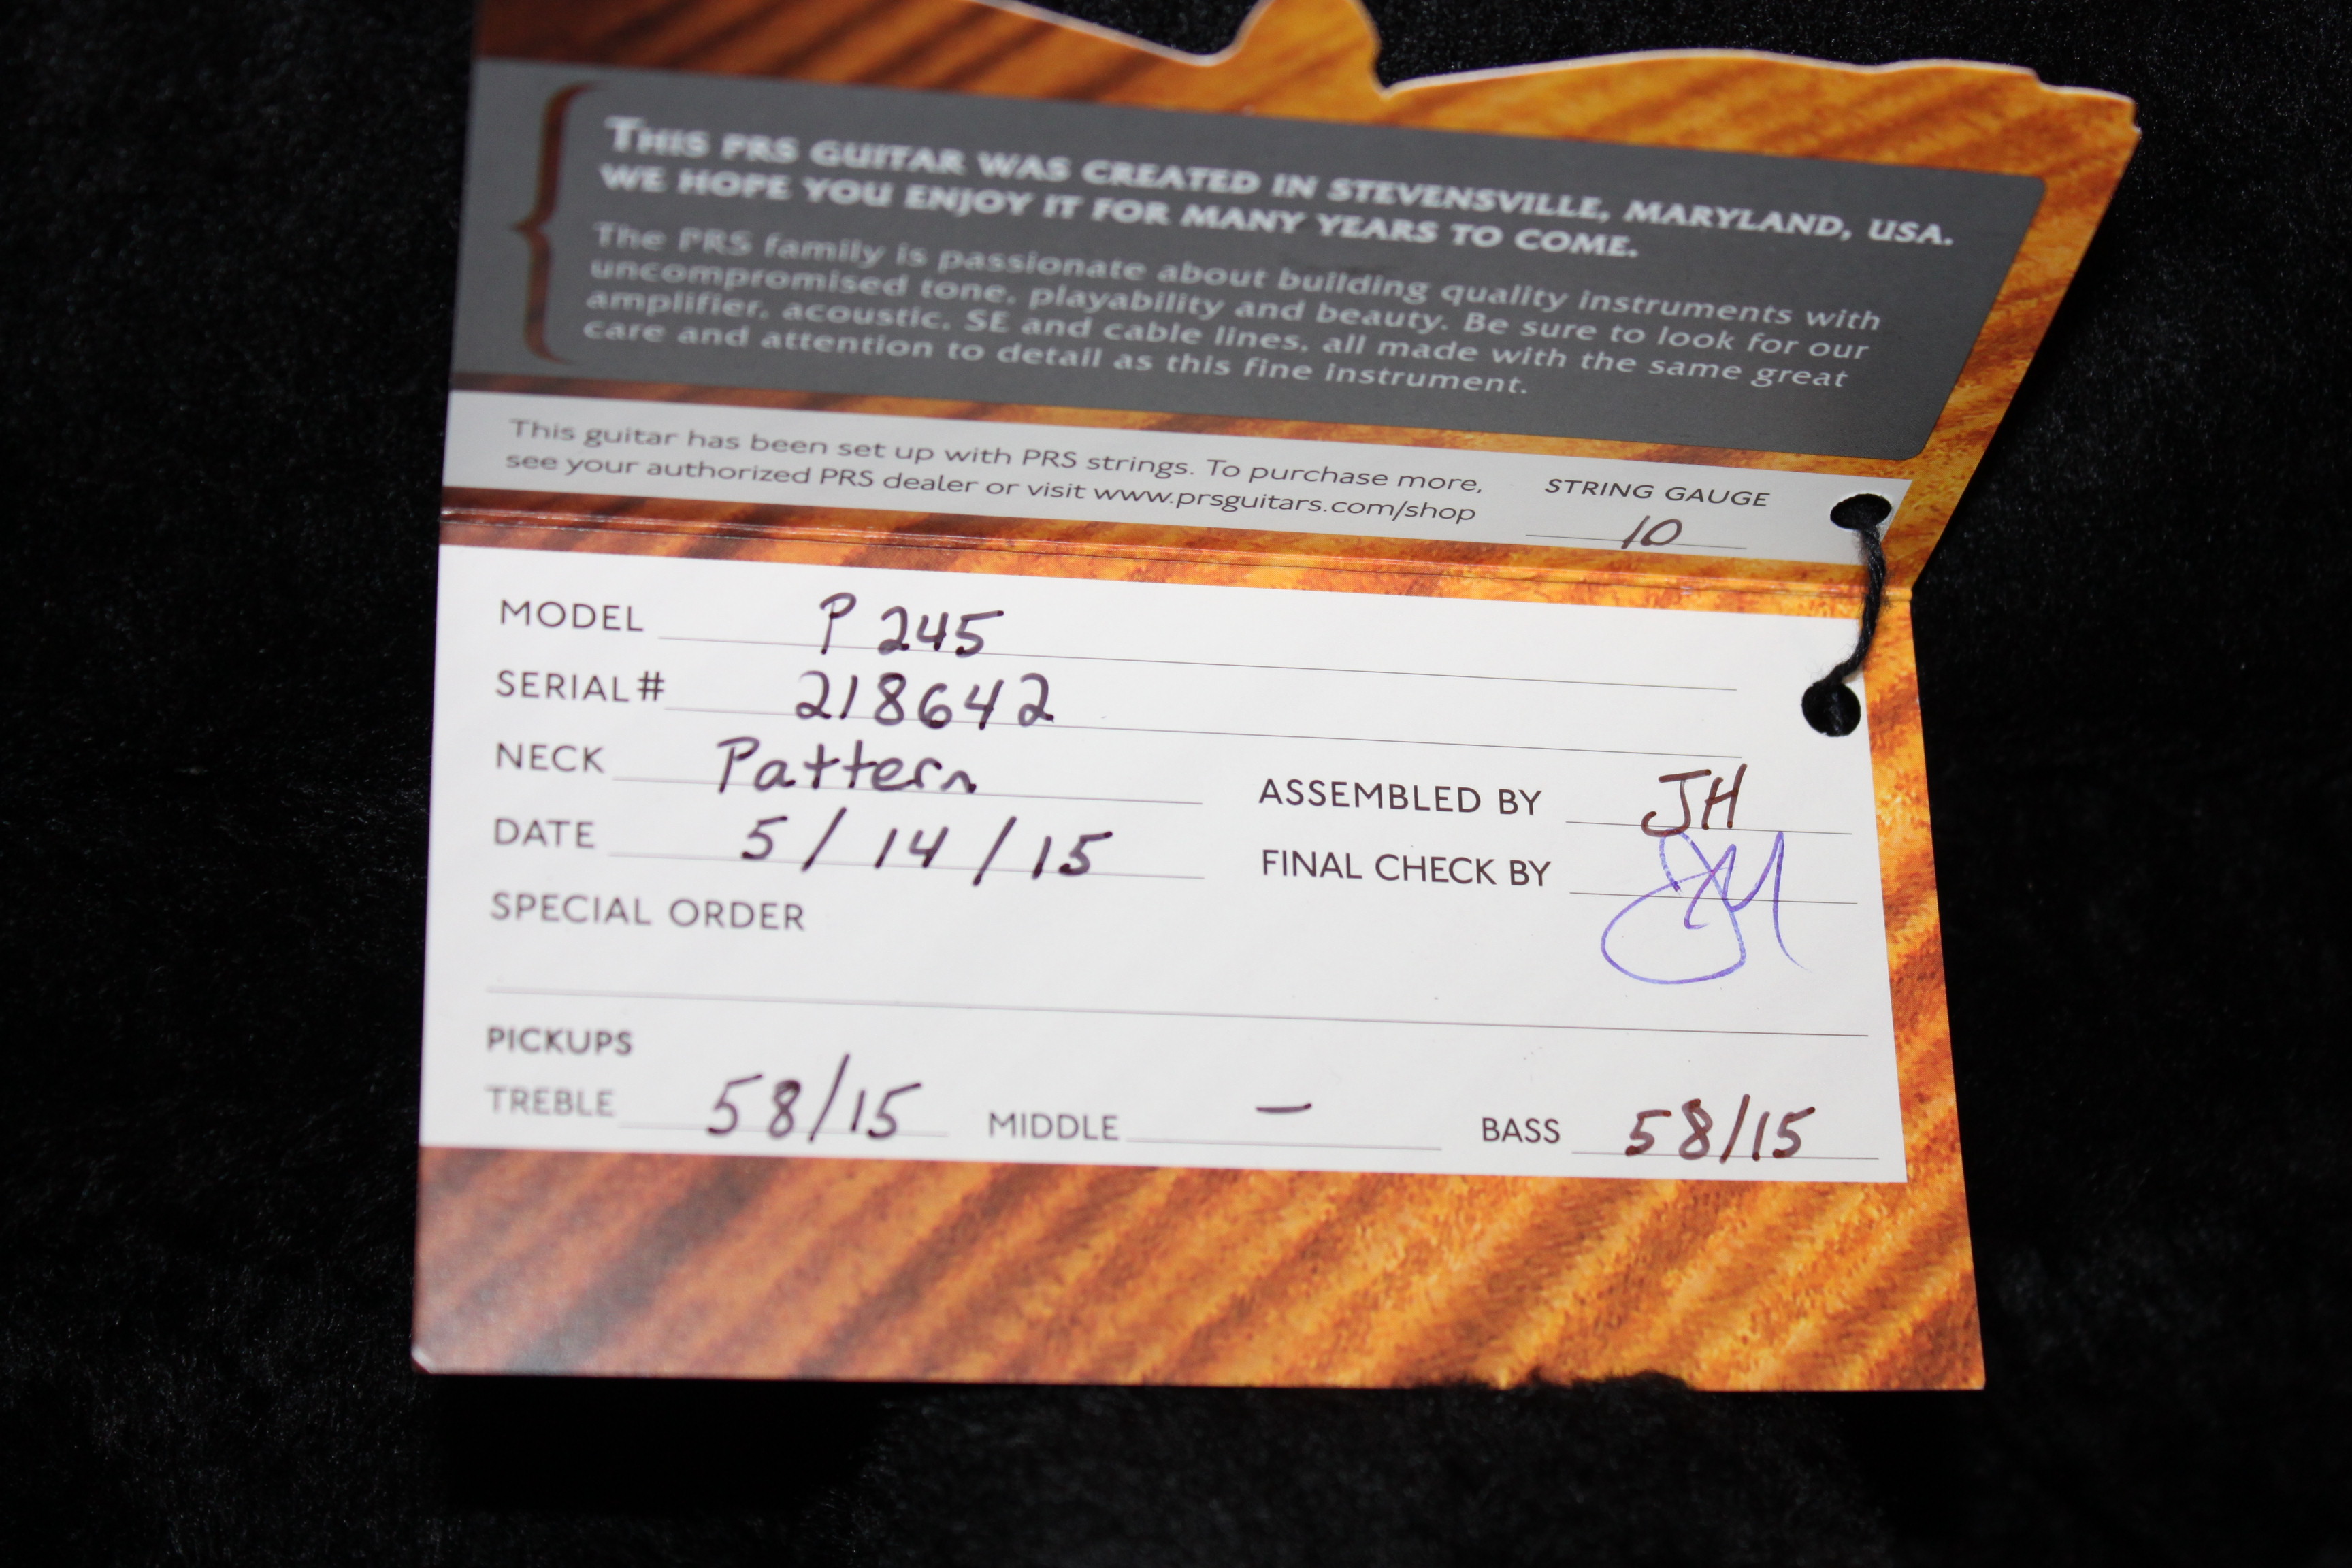 THIS PRS GUITAR WAS CREATED IN STEVENSVILLE, MARYLAND, USA.
WE HOPE YOU ENJOY IT FOR MANY YEARS TO COME.
The PRS family is passionate about building quality instruments with
uncompromised tone, playability and beauty. Be sure to look for our
amplifier, acoustic, SE and cable lines, all made with the same great
care and attention to detail as this fine instrument.
This guitar has been set up with PRS strings. To purchase more,
see your authorized PRS dealer or visit www.prsguitars.com/shop
STRING GAUGE
10
MODEL P 245
SERIAL# 218642
NECK Pattern
ASSEMBLED BY JH
DATE 5/14/15
FINAL CHECK BY
SPECIAL ORDER
PICKUPS
TREBLE 58/15 MIDDLE – BASS 58/15